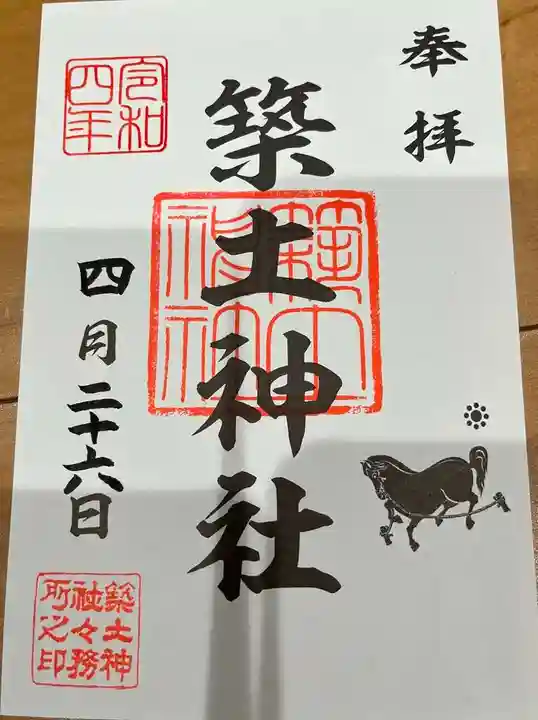 奉拝
築土神社
築土神社
令和四年
四月二十六日
築土神社々務所之印